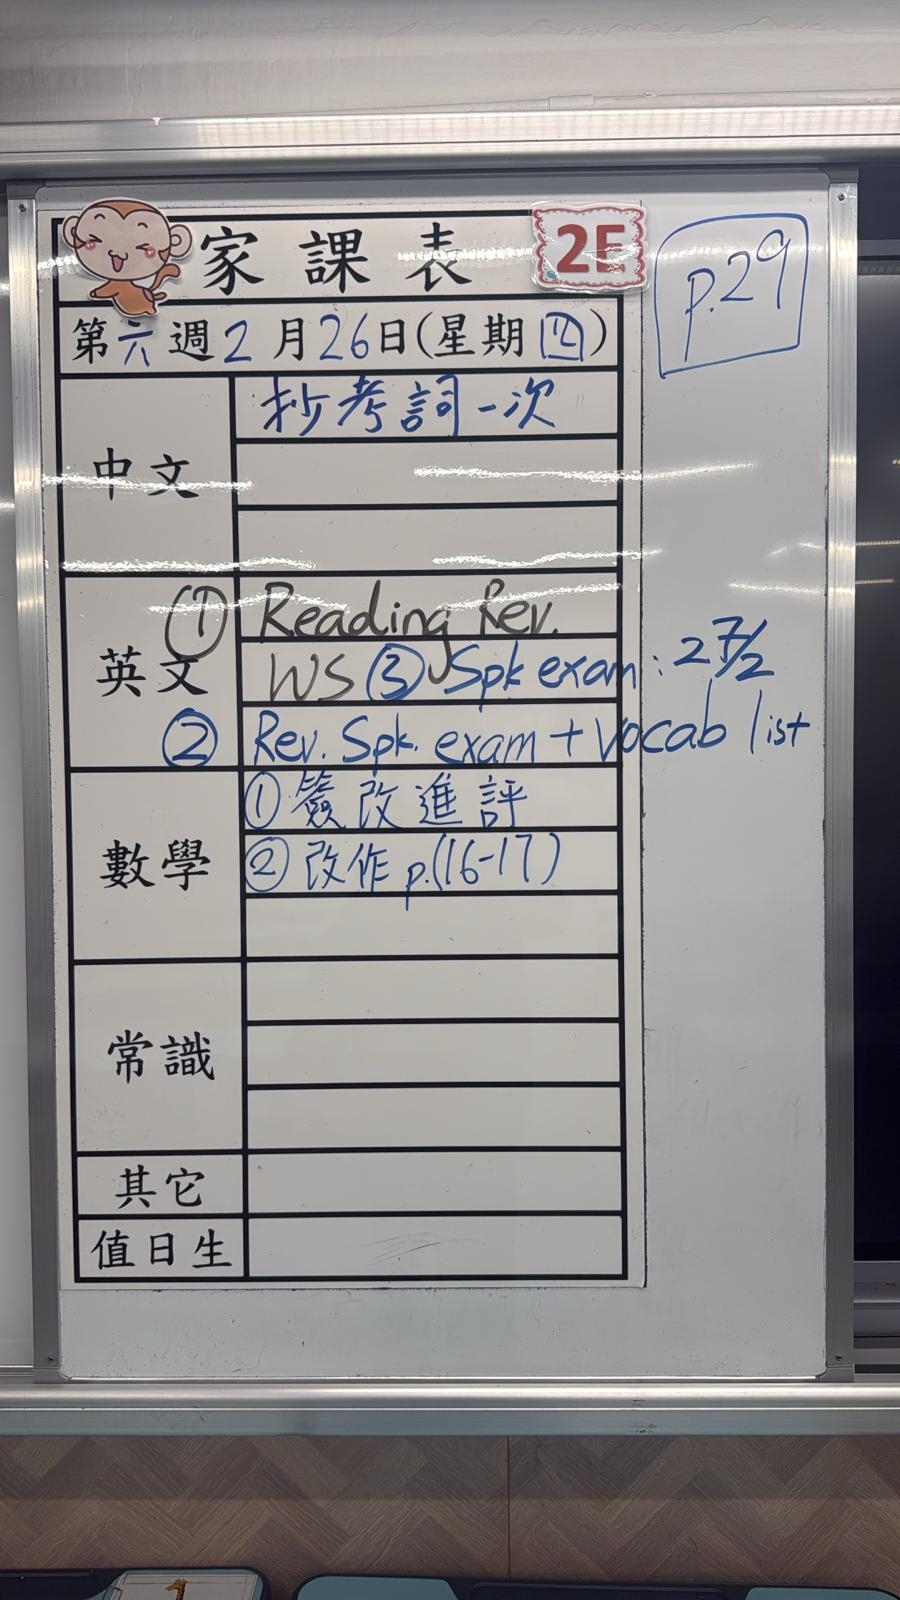 家課表 2E
p.29
第六週2月26日(星期四)
中文
抄考詞一次
英文
① Reading Rev.
WS ③ Spk exam: 27/2
② Rev. Spk. exam + vocab list
數學
① 簽改進評
② 改作 p.(16-17)
常識
其它
值日生
1